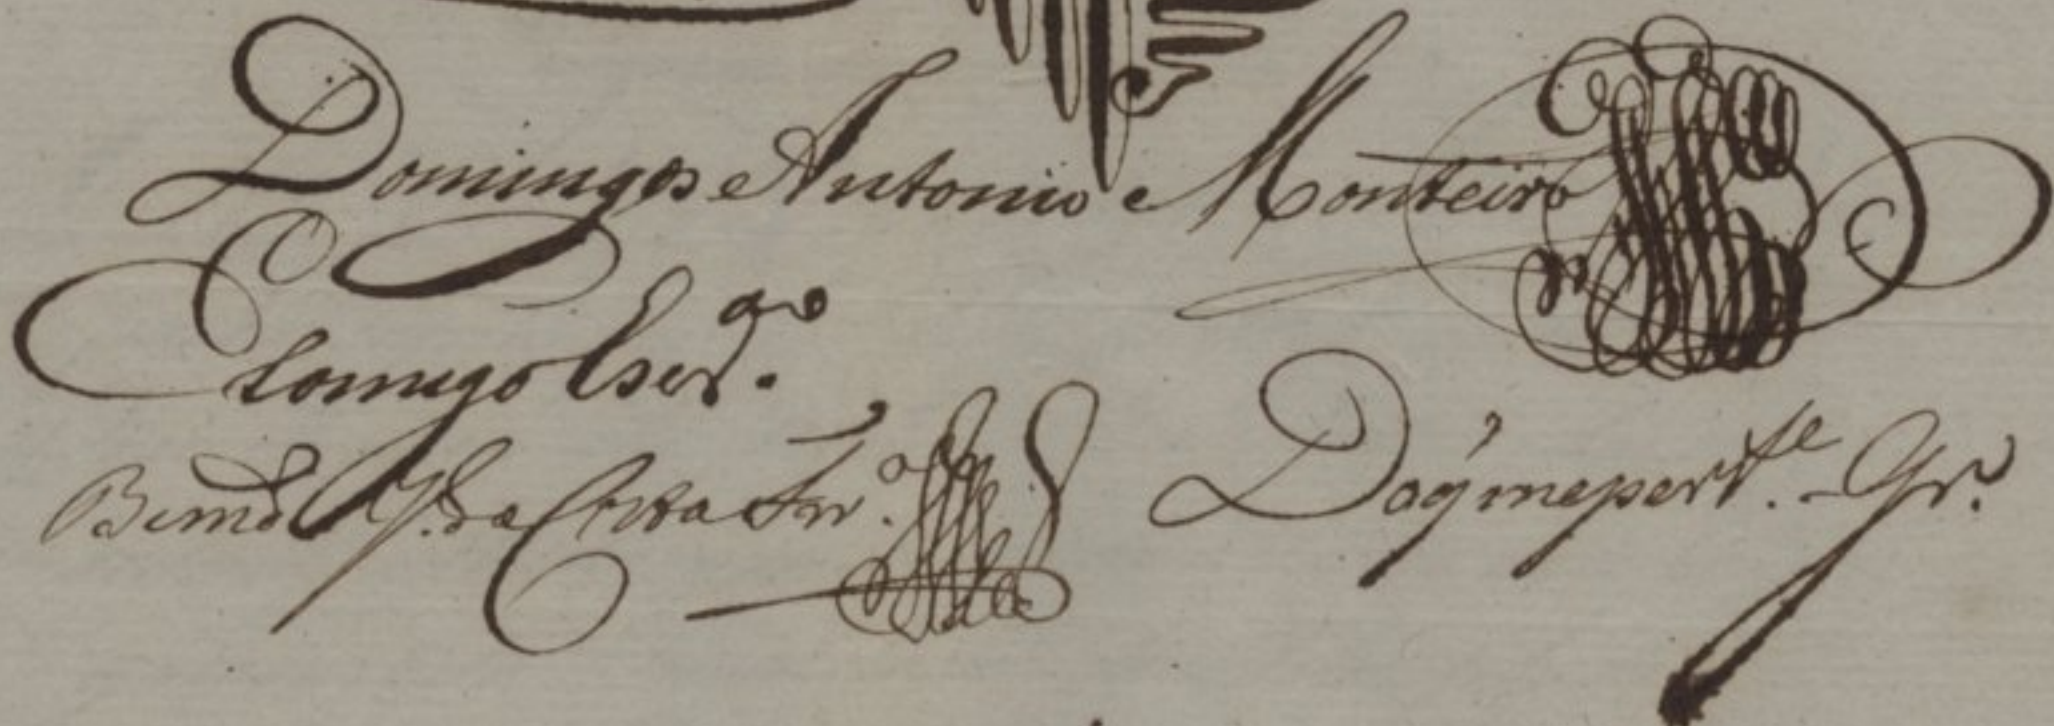 Domingos Antonio Monteiro
Comigo Escr.am
Bernd.o J. da Costa Fr.o
Daq. me pert.e Gr.